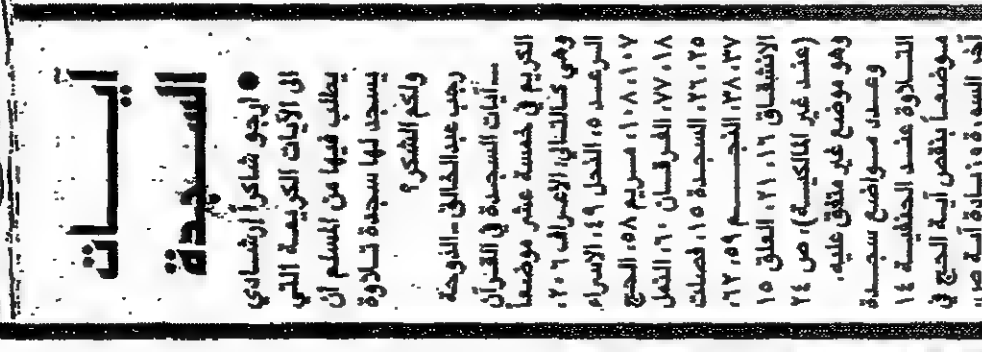 آيـــــات
السـجدة
● ارجو شاكرا ارشادي
الى الآيات الكريمـة التي
يطلب فيها من المسلم ان
يسجد لها سجدة تلاوة
ولكم الشكر؟
رجب عبدالخالق ـ الدوحة
ـ آيات السجدة في القرآن
الكريم في خمسة عشر موضعاً
وهي كـالتـالي: الاعراف ٢٠٦،
الـرعـد ١٥، النحل ٤٩، الاسراء
١٠٧، ١٠٨، مـريـم ٥٨، الحج
١٨، ٧٧، الفرقـان ٦٠، النمل
٢٥، ٢٦، السجـدة ١٥، فصلت
٣٧، ٣٨، النجـــم ٥٩، ٦٢،
الانشقـاق ١٦، ٢١، العلق ١٥
(عند غير المالكيـة)، ص ٢٤
وهو موضع غير متفق عليه.
وعـدد مـواضع سجـدة
التـلاوة عنـد الحنفيـة ١٤
موضعـاً بنقص آيـة الحج في
آخر السورة وزيـادة آيـة ص،